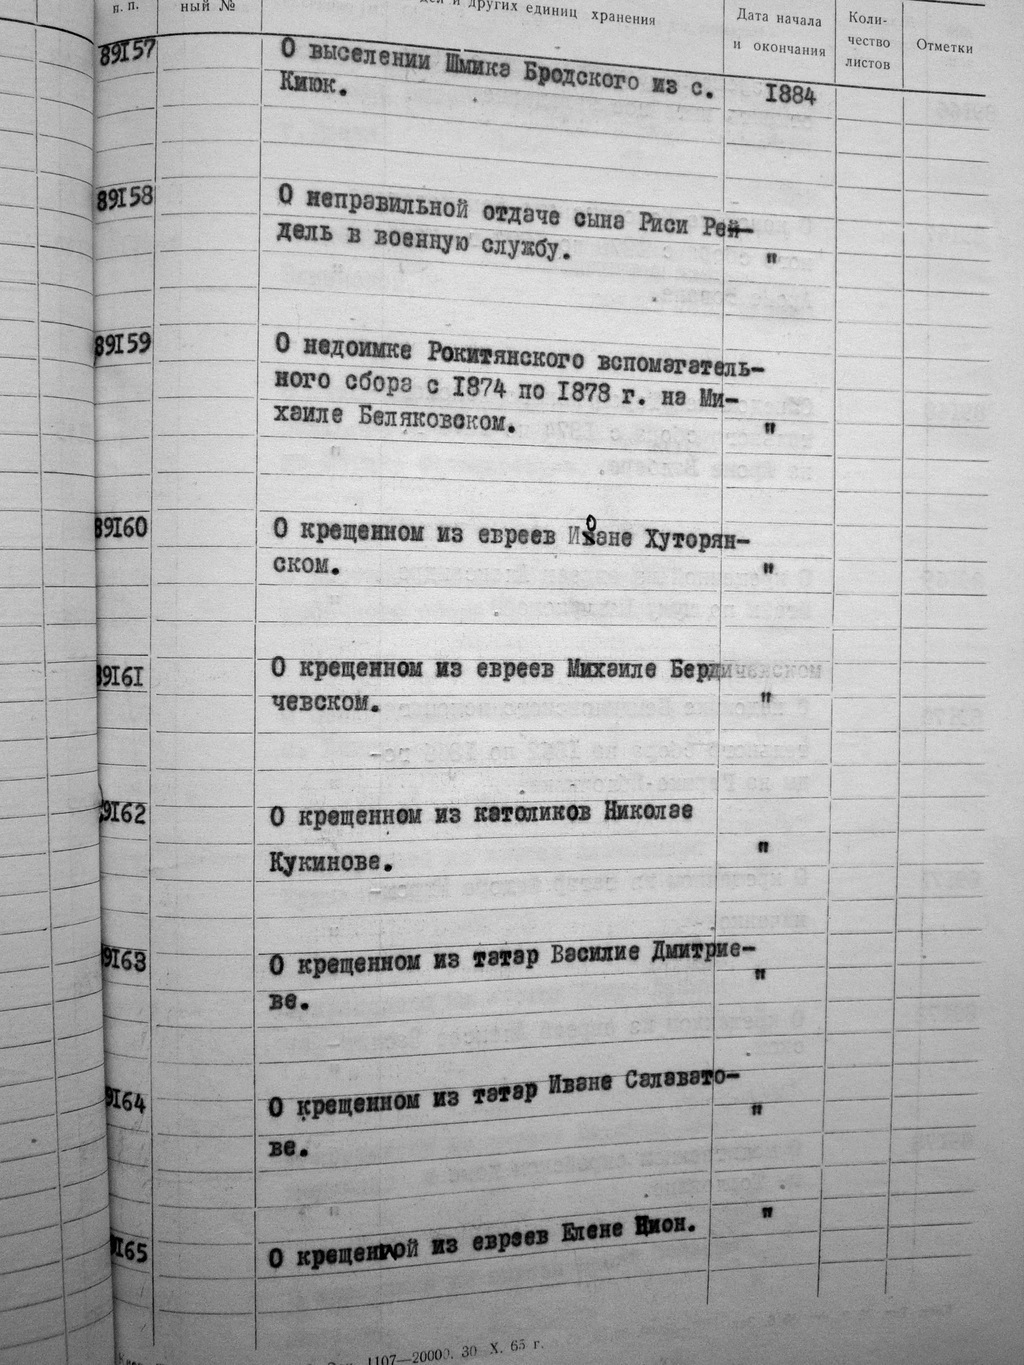 п. п.
ный №
и других единиц хранения
Дата начала
и окончания
Коли-
чество
листов
Отметки
89157 О выселении Шмика Бродского из с.
Киюк. 1884
89158 О неправильной отдаче сына Риси Рей-
дель в военную службу. "
89159 О недоимке Рокитянского вспомагатель-
ного сбора с 1874 по 1878 г. на Ми-
хаиле Беляковском. "
89160 О крещенном из евреев Иоане Хуторян-
ском. "
89161 О крещенном из евреев Михаиле Берди
чевском. "
89162 О крещенном из католиков Николае
Кукинове. "
89163 О крещенном из татар Василие Дмитрие-
ве. "
9164 О крещенном из татар Иване Салавато-
ве. "
9165 О крещенной из евреев Елене Цион. "
1107—20000. 30 X. 65 г.